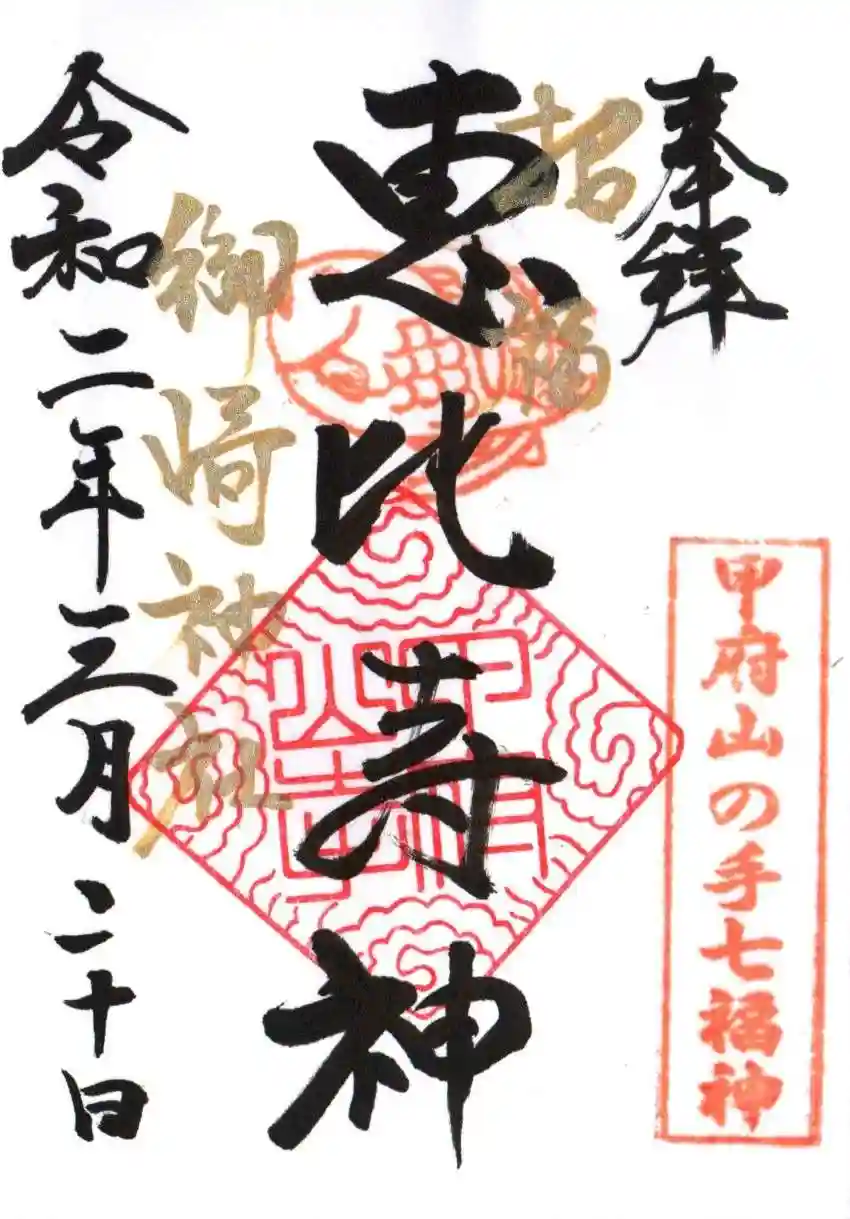 奉拜
甲府山の手七福神
招福
恵比寿神
御崎神社
令和二年三月二十日